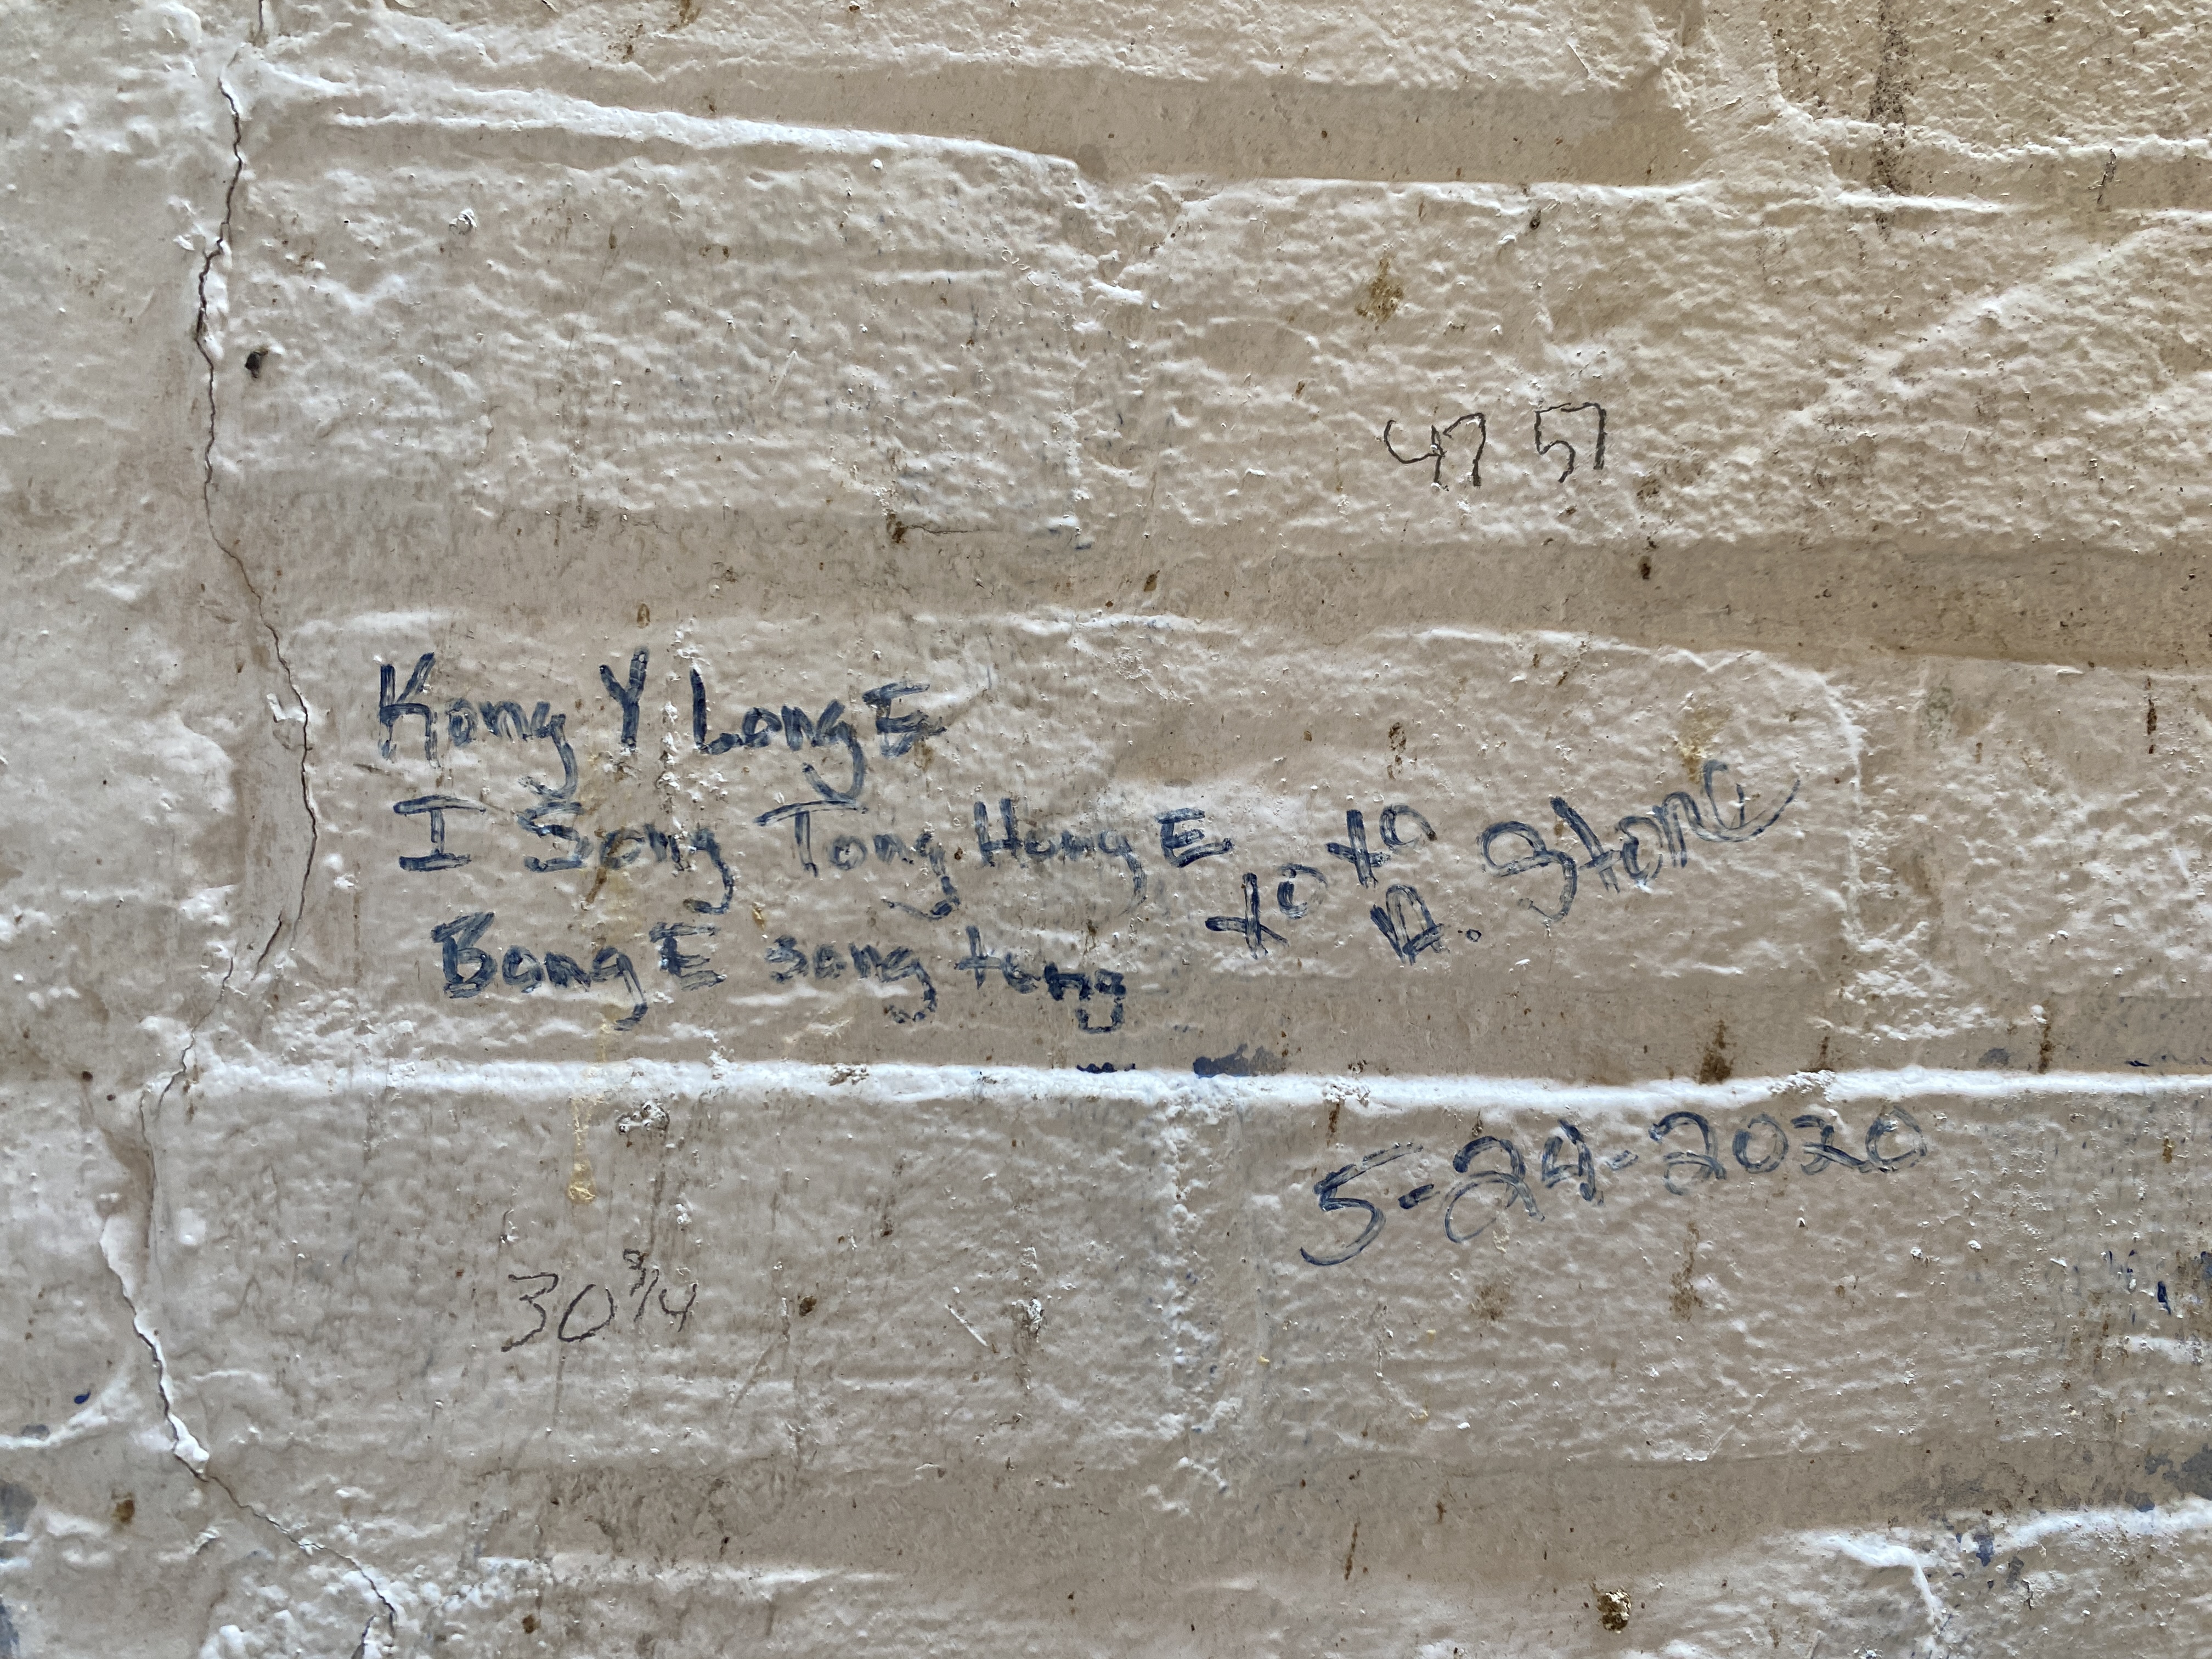 47 57
Kong Y Long E
I Song Tong Hong E
Bong E song tong
to to
A. Stone
5-24-2020
30 3/4